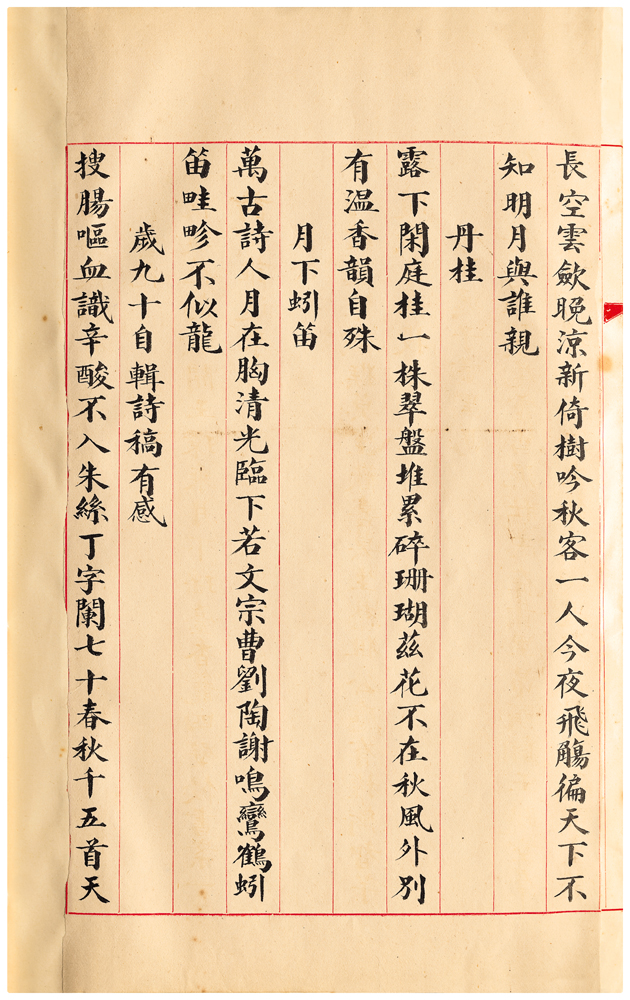 長空雲歛晚涼新倚樹吟秋客一人今夜飛觴徧天下不
知明月與誰親
丹桂
露下閑庭桂一株翠盤堆累碎珊瑚茲花不在秋風外別
有温香韻自殊
月下蚓笛
萬古詩人月在胸清光臨下若文宗曹劉陶謝鳴鸞鶴蚓
笛畦畛不似龍
歲九十自輯詩稿有感
搜腸嘔血識辛酸不入朱絲丁字闌七十春秋千五首天